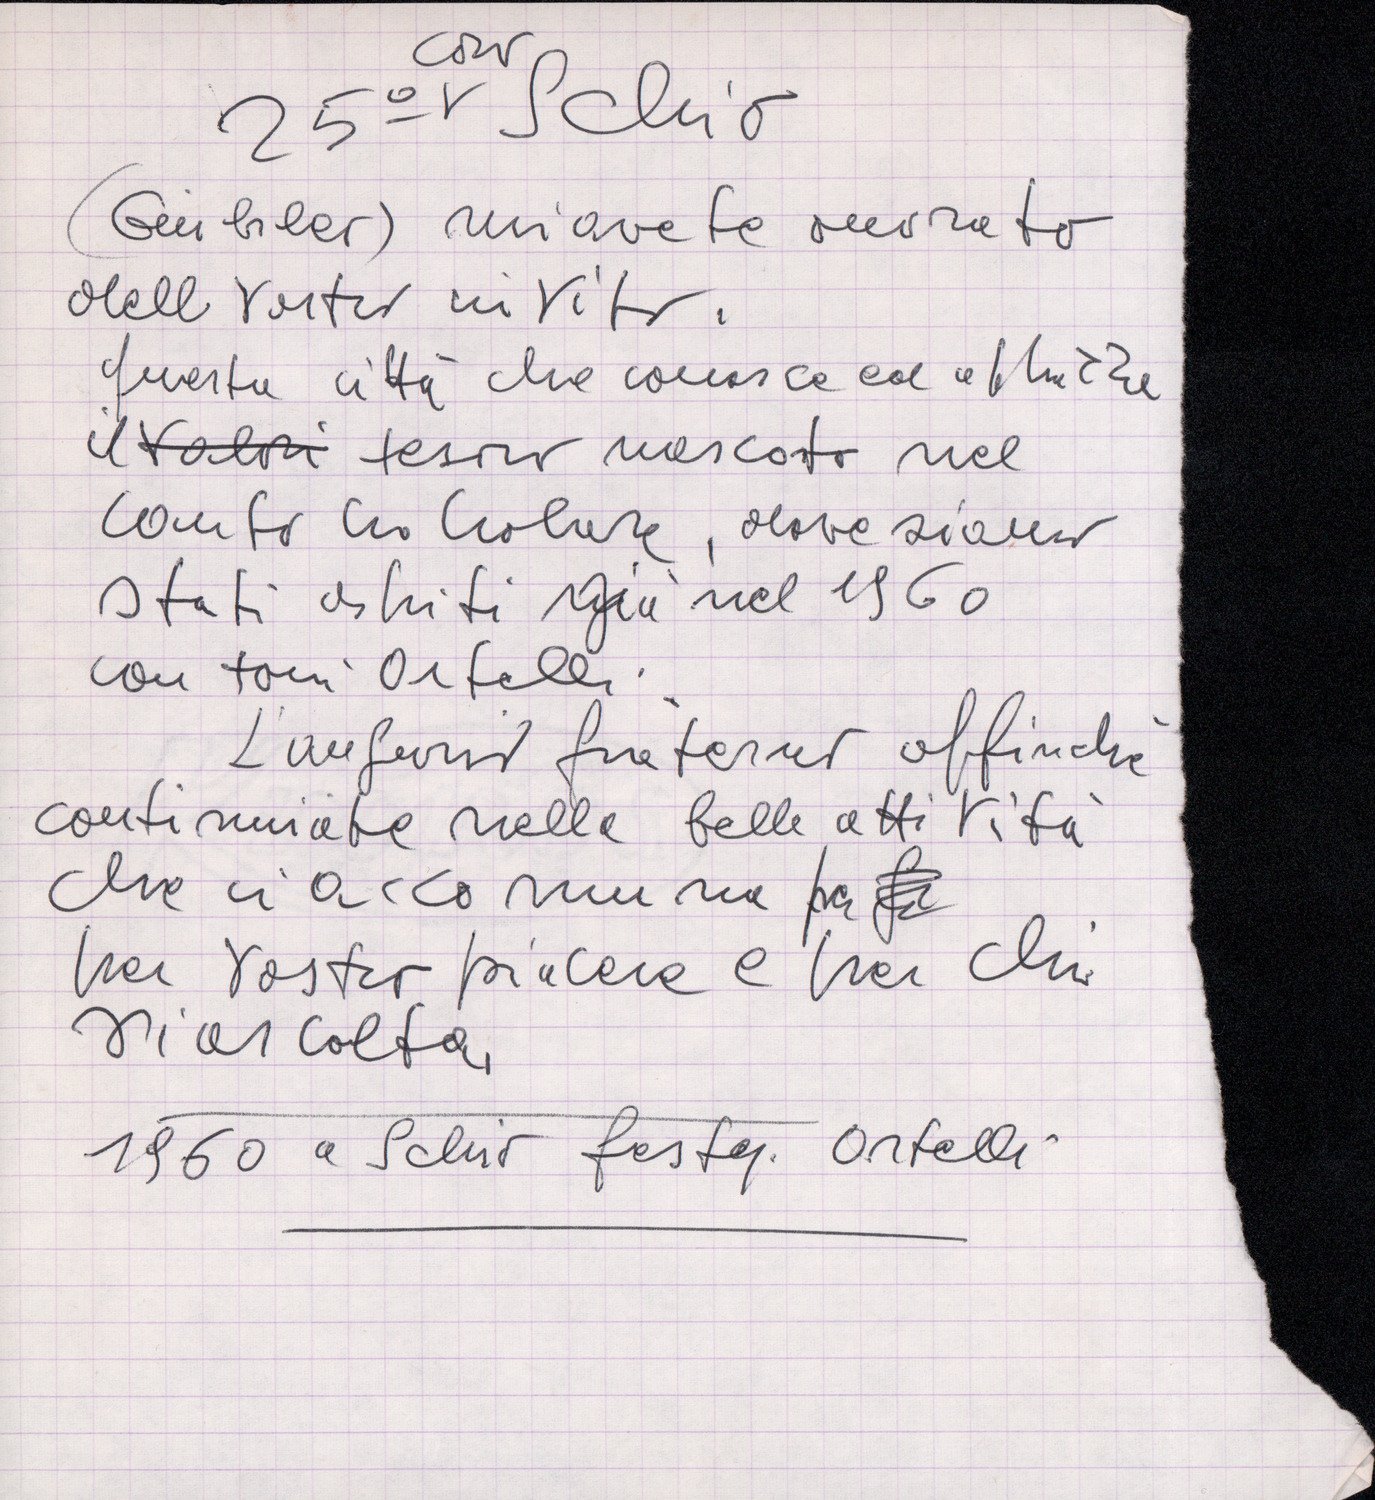 coro
25º V Schio
(Giubileo) mi avete onorato
dell vostro invito.
Questa città che conosce ed apprezza
il valori tesoro nascosto nel
canto popolare, dove siamo
stati ospiti già nel 1960
con Toni Ortelli.
L'augurio fraterno affinché
continuiate nella bella attività
che ci accomuna per
per vostro piacere e per chi
vi ascolta,
1960 a Schio festeg. Ortelli